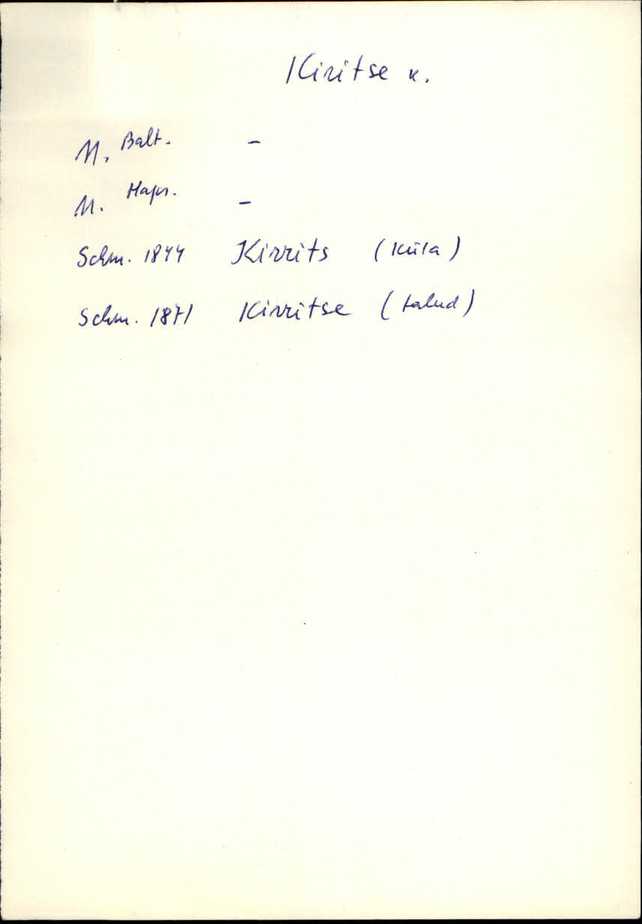 Kiritse k.
M. Balt. –
M. Haps. –
Schm. 1844 Kirrits (küla)
Schm. 1871 Kirritse (talud)